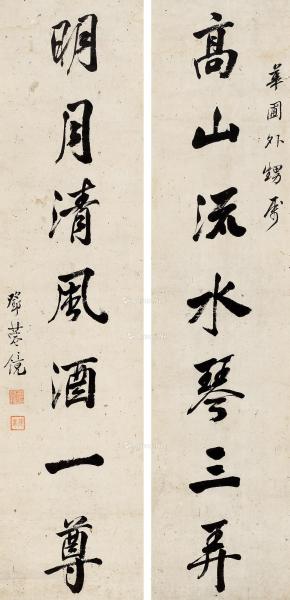 華圃外甥屬
高山流水琴三弄
明月清風酒一尊
鄧蓉鏡